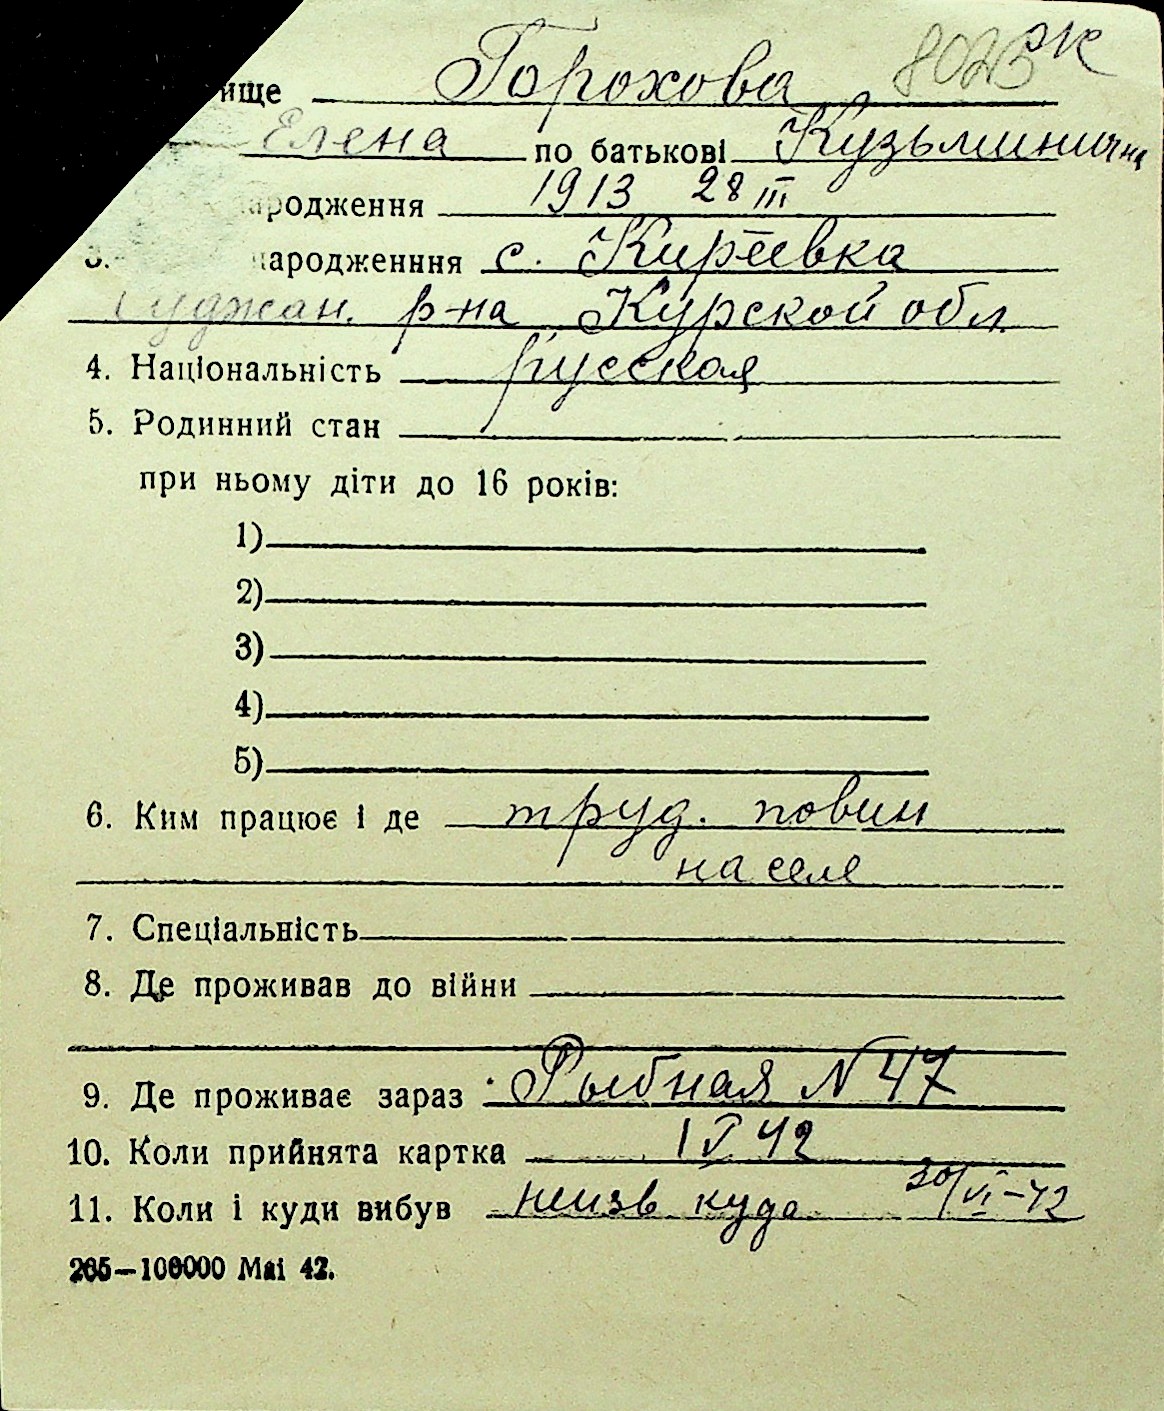 8025 ж
ище Горохова
Елена по батькові Кузьминична
ародження 1913 28 III
3. народженння с. Киреевка
Суджан. р-на Курской обл.
4. Національність русская
5. Родинний стан
при ньому діти до 16 років:
1)
2)
3)
4)
5)
6. Ким працює і де труд. повин
на селе
7. Спеціальність
8. Де проживав до війни
9. Де проживає зараз Рыбная N 47
10. Коли прийнята картка 1 V 42
11. Коли і куди вибув неизв куда 30/VI-42
265—100000 Маі 42.